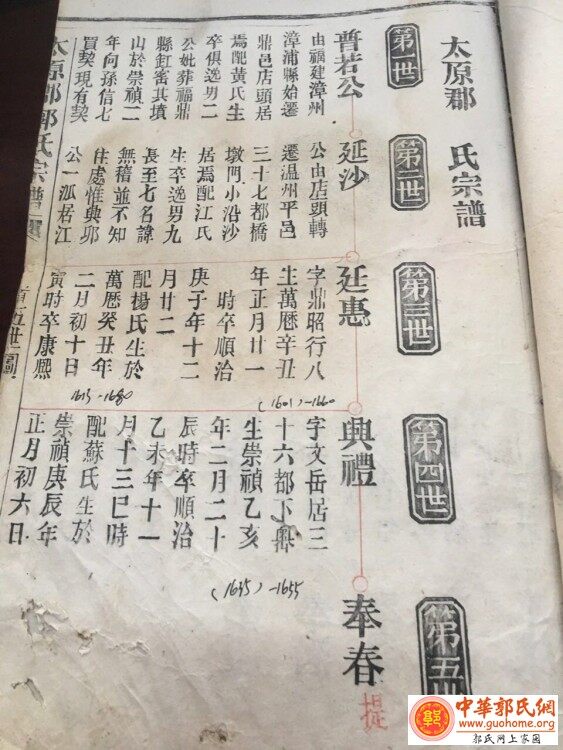 太原郡 氏宗譜
第一世
第二世
第三世
第四世
第五世
普若公
由福建漳州
漳浦縣始遷
鼎邑店頭居
焉配黃氏生
卒俱逸男二
公妣葬福鼎
縣釘蜜其墳
山於崇禎二
年向孫信七
買契現有契
延沙
公由店頭轉
遷温州平邑
三十七都橋
墩門小沿沙
居焉配江氏
生卒逸男九
長至七名諱
無稽並不知
住處惟典卯
公一派居江
廷惠
字鼎昭行八
生萬歷辛丑
年正月廿一
時卒順治
庚子年十二
月廿二
配楊氏生於
萬歷癸丑年
二月初十日
寅時卒康熙
(1601)-1660
1613-1680
興禮
字文岳居三
十六都下
生崇禎乙亥
年二月二十
辰時卒順治
乙未年十一
月十三巳時
配蘇氏生於
崇禎庚辰年
正月初六日
(1635)-1655
奉春
提
太原郡郭氏宗譜
首五世圖
中華郭氏網
www.guohome.org
郭氏網上家園